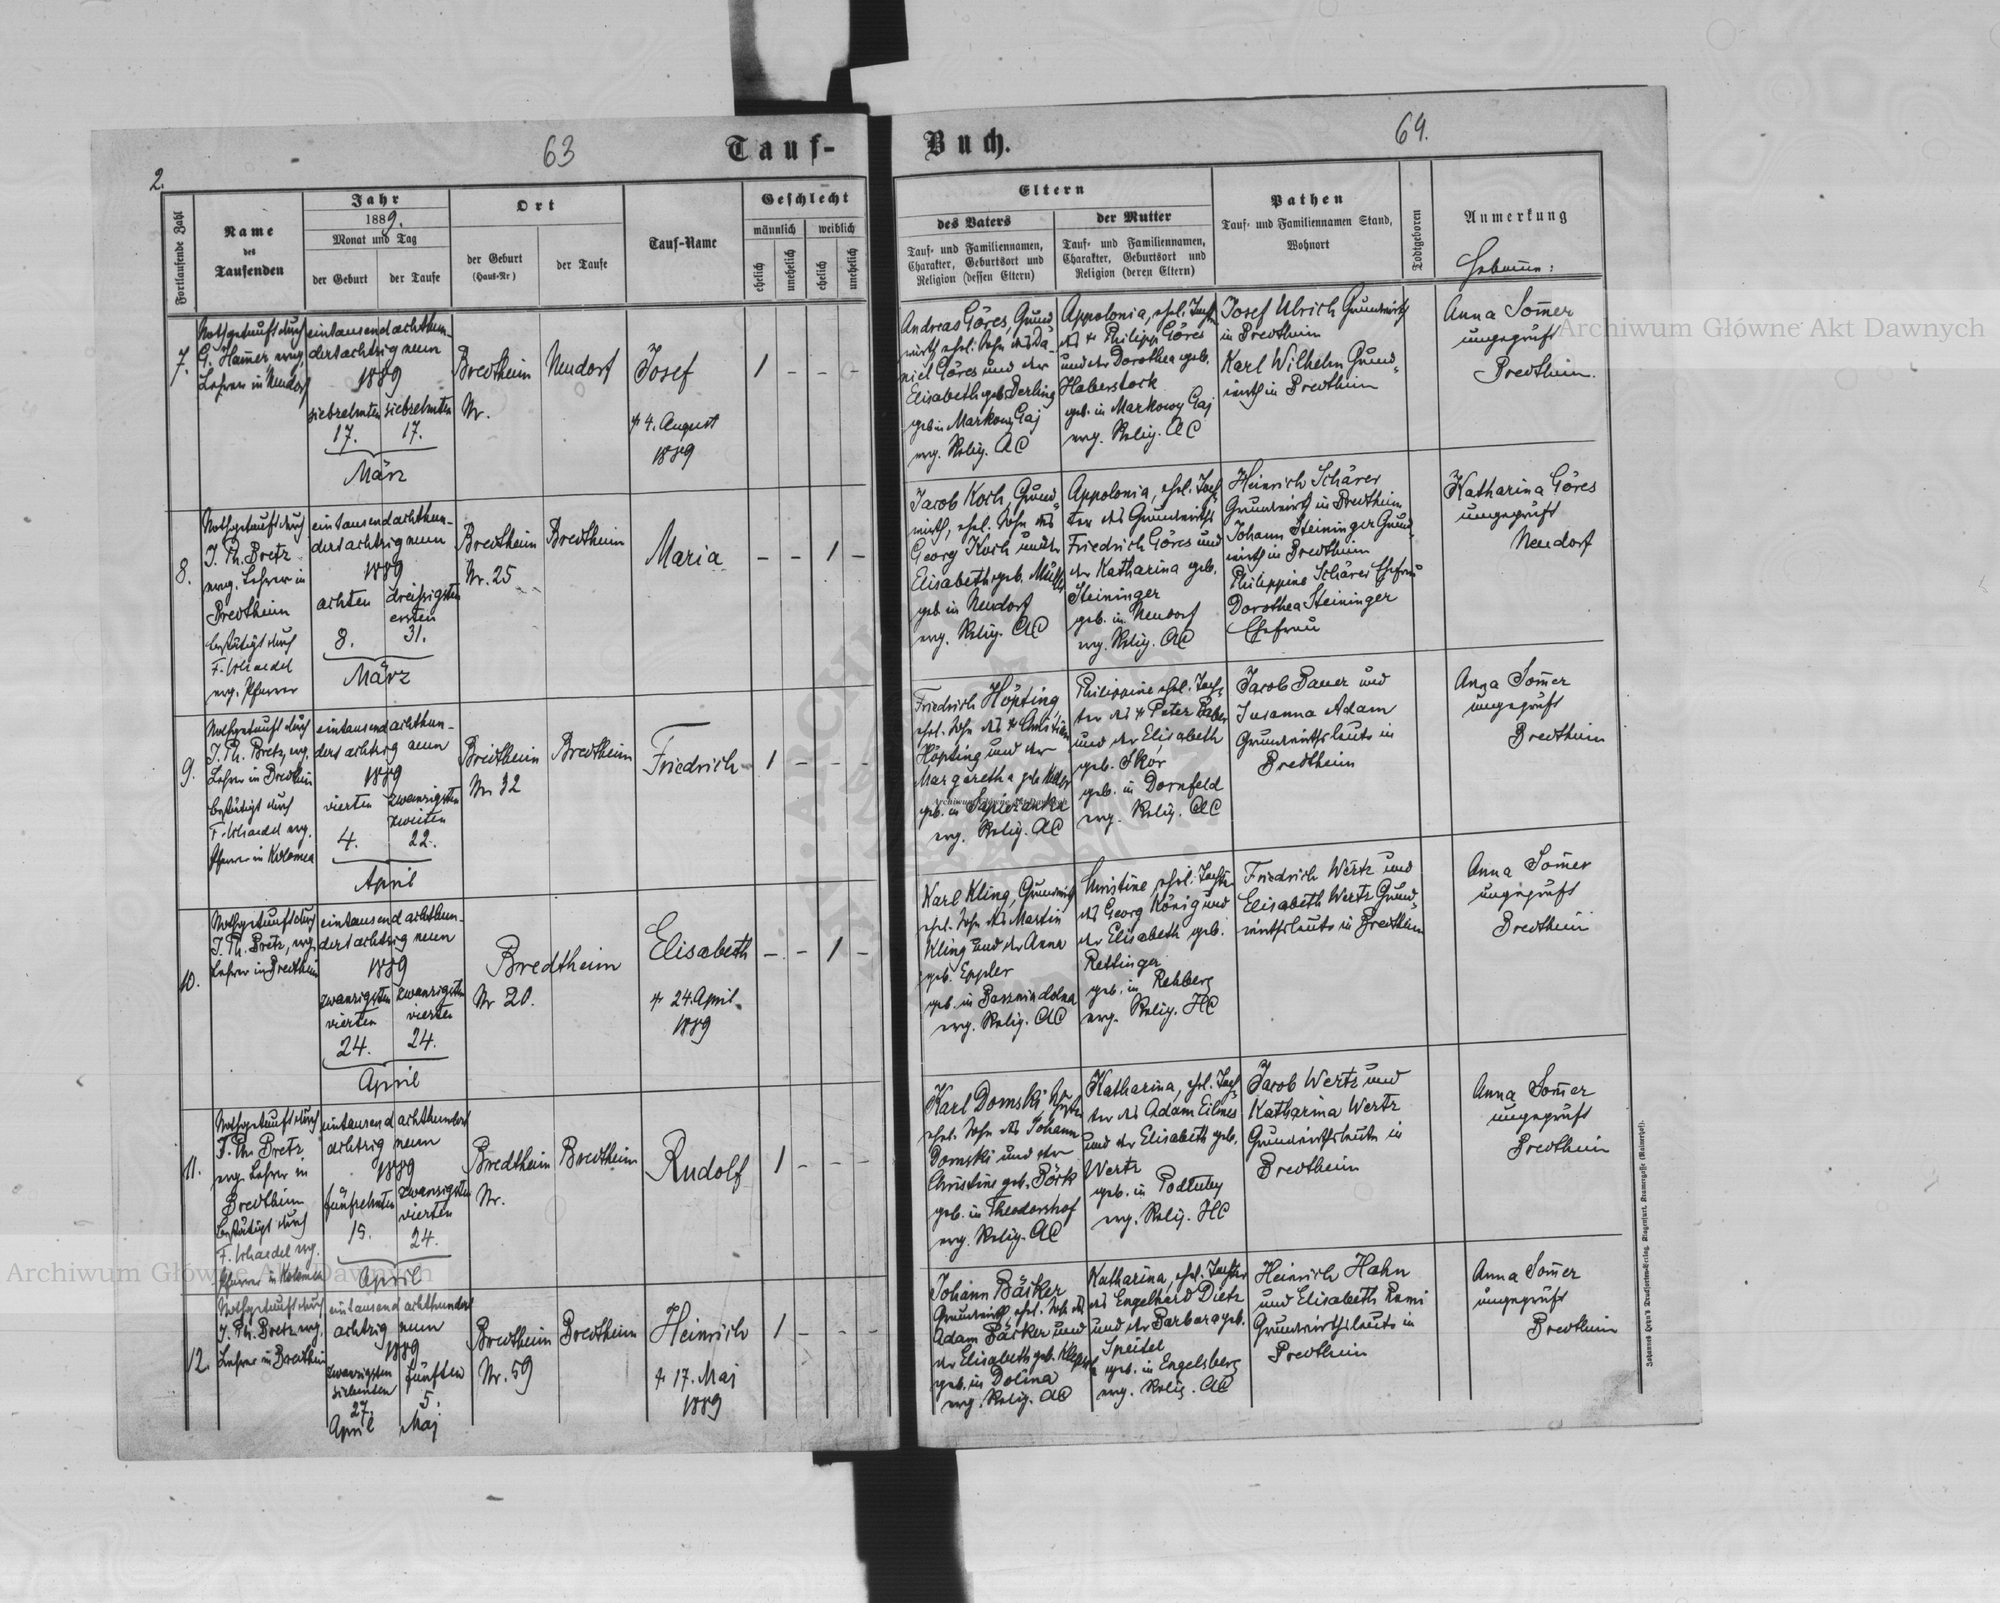 63
64.
Tauf-
Buch.
2.
Fortlaufende Zahl
Name
des
Taufenden
Jahr
1889.
Monat und Tag
der Geburt
der Taufe
Ort
der Geburt
(Haus-Nr)
der Taufe
Tauf-Name
Geschlecht
männlich
weiblich
ehelich
unehelich
ehelich
unehelich
Eltern
des Vaters
Tauf- und Familiennamen,
Charakter, Geburtsort und
Religion (dessen Eltern)
der Mutter
Tauf- und Familiennamen,
Charakter, Geburtsort und
Religion (deren Eltern)
Pathen
Tauf- und Familiennamen Stand,
Wohnort
Todtgeboren
Anmerkung
7.
Nothgetauft durch
G. Hamer evng.
Lehrer in Neudorf
eintausend achthun-
dert achtzig neun
1889
siebzehnten siebzehnten
17. 17.
März
Bredtheim
Nr.
Neudorf
Josef
† 4. August
1889
1 - - -
Andreas Göres, Grund
wirth ehel. Sohn des Da-
niel Göres und der
Elisabeth geb. Berling
geb in Markowy Gaj
evg. Relig. AC
Appolonia, ehel. Toch
des † Philipp Göres
und der Dorothea geb.
Haberstock
geb. in Markowy Gaj
evg. Relig. AC
Josef Ulrich Grundwirth
in Bredtheim
Karl Wilhelm Grund-
wirth in Bredtheim
Anna Somer
ungeprüft
Bredtheim.
8.
Nothgetauft durch
J. Ph. Bretz
evng. Lehrer in
Bredtheim
bestätigt durch
evg. Pfarrer
eintausend achthun-
dert achtzig neun
1889
achten dreißigsten
ersten
8. 31.
März
Bredtheim
Nr. 25
Bredtheim
Maria
- - 1 -
Jacob Koch, Grund-
wirth, ehel. Sohn des
Georg Koch und der
Elisabeth geb. Müller
geb in Neudorf
evg. Relig. AC
Appolonia, ehel. Toch-
ter des Grundwirths
Friedrich Göres und
der Katharina geb.
Steininger
geb. in Neudorf
evg. Relig. AC
Heinrich Schärer
Grundwirth in Bredtheim
Johann Steininger Grund-
wirth in Bredtheim
Philippine Schärer Ehefrau
Dorothea Steininger
Ehefrau
Katharina Göres
ungeprüft
Neudorf
9.
Nothgetauft durch
J. Ph. Bretz, evg
Lehrer in Bredtheim
bestätigt durch
Pfarrer in Kolomea
eintausend achthun-
dert achtzig neun
1889
vierten zwanzigsten
zweiten
4. 22.
April
Bredtheim
Nr 32
Bredtheim
Friedrich
1 - - -
Friedrich Höpting,
ehel. Sohn des † Christian
Höpting und der
Margaretha geb. Keller
geb. in Sapiezanka
evg. Relig. AC
Philippine ehel. Toch-
ter des † Peter Faber
und der Elisabeth
geb. Skor
geb. in Dornfeld
evg. Relig. AC
Jacob Bauer und
Susanna Adam
Grundwirthsleute in
Bredtheim
Anna Somer
ungeprüft
Bredtheim
10.
Nothgetauft durch
J. Ph. Bretz, evng.
Lehrer in Bredtheim
eintausend achthun-
dert achtzig neun
1889
zwanzigsten zwanzigsten
vierten vierten
24. 24.
April
Bredtheim
Nr 20.
Elisabeth
† 24. April
1889
- - 1 -
Karl Kling, Grundwirth
ehel. Sohn des Martin
Kling und der Anna
geb. Eppler
geb. in Basznia dolna
evg. Relig. AC
Christine, ehel. Tochter
des Georg König und
der Elisabeth geb.
Rettinger
geb. in Rehberg
evg. Relig. HC
Friedrich Wertz und
Elisabeth Wertz Grund-
wirthsleute in Bredtheim
Anna Somer
ungeprüft
Bredtheim
11.
Nothgetauft durch
J. Ph. Bretz
evg. Lehrer in
Bredtheim
bestätigt durch
Pfarrer in Kolomea
eintausend achthundert
achtzig neun
1889
fünfzehnten zwanzigsten
vierten
15. 24.
April
Bredtheim
Nr.
Bredtheim
Rudolf
1 - - -
Karl Domski,
ehel. Sohn des Johann
Domski und der
Christine geb. Börk
geb. in Theodorshof
evg. Relig. AC
Katharina, ehel. Toch-
ter des Adam Eilmes
und der Elisabeth geb.
Wertz
geb. in Podluby
evg. Relig. HC
Jacob Wertz und
Katharina Wertz
Grundwirthsleute in
Bredtheim
Anna Somer
ungeprüft
Bredtheim
12.
Nothgetauft durch
J. Ph. Bretz evg.
Lehrer in Bredtheim
eintausend achthundert
achtzig neun
1889
zwanzigsten fünften
siebenten
27. 5.
April Maj
Bredtheim
Nr. 59
Bredtheim
Heinrich
† 17. Maj
1889
1 - - -
Johann Bäcker
Grundwirth, ehel. Sohn des
Adam Bäcker und
der Elisabeth geb.
geb. in Dolina
evg. Relig. AC
Katharina, ehel. Tochter
des Engelhard Dietz
und der Barbara geb.
Speitel
geb. in Engelsberg
evg. Relig. AC
Heinrich Hahn
und Elisabeth Remi
Grundwirthsleute in
Bredtheim
Anna Somer
ungeprüft
Bredtheim
Johannes Heyn's Drucksorten-Verlag, Klagenfurt, Kramergasse
Archiwum Główne Akt Dawnych
Archiwum Główne Akt Dawnych
Archiwum Główne Akt Dawnych